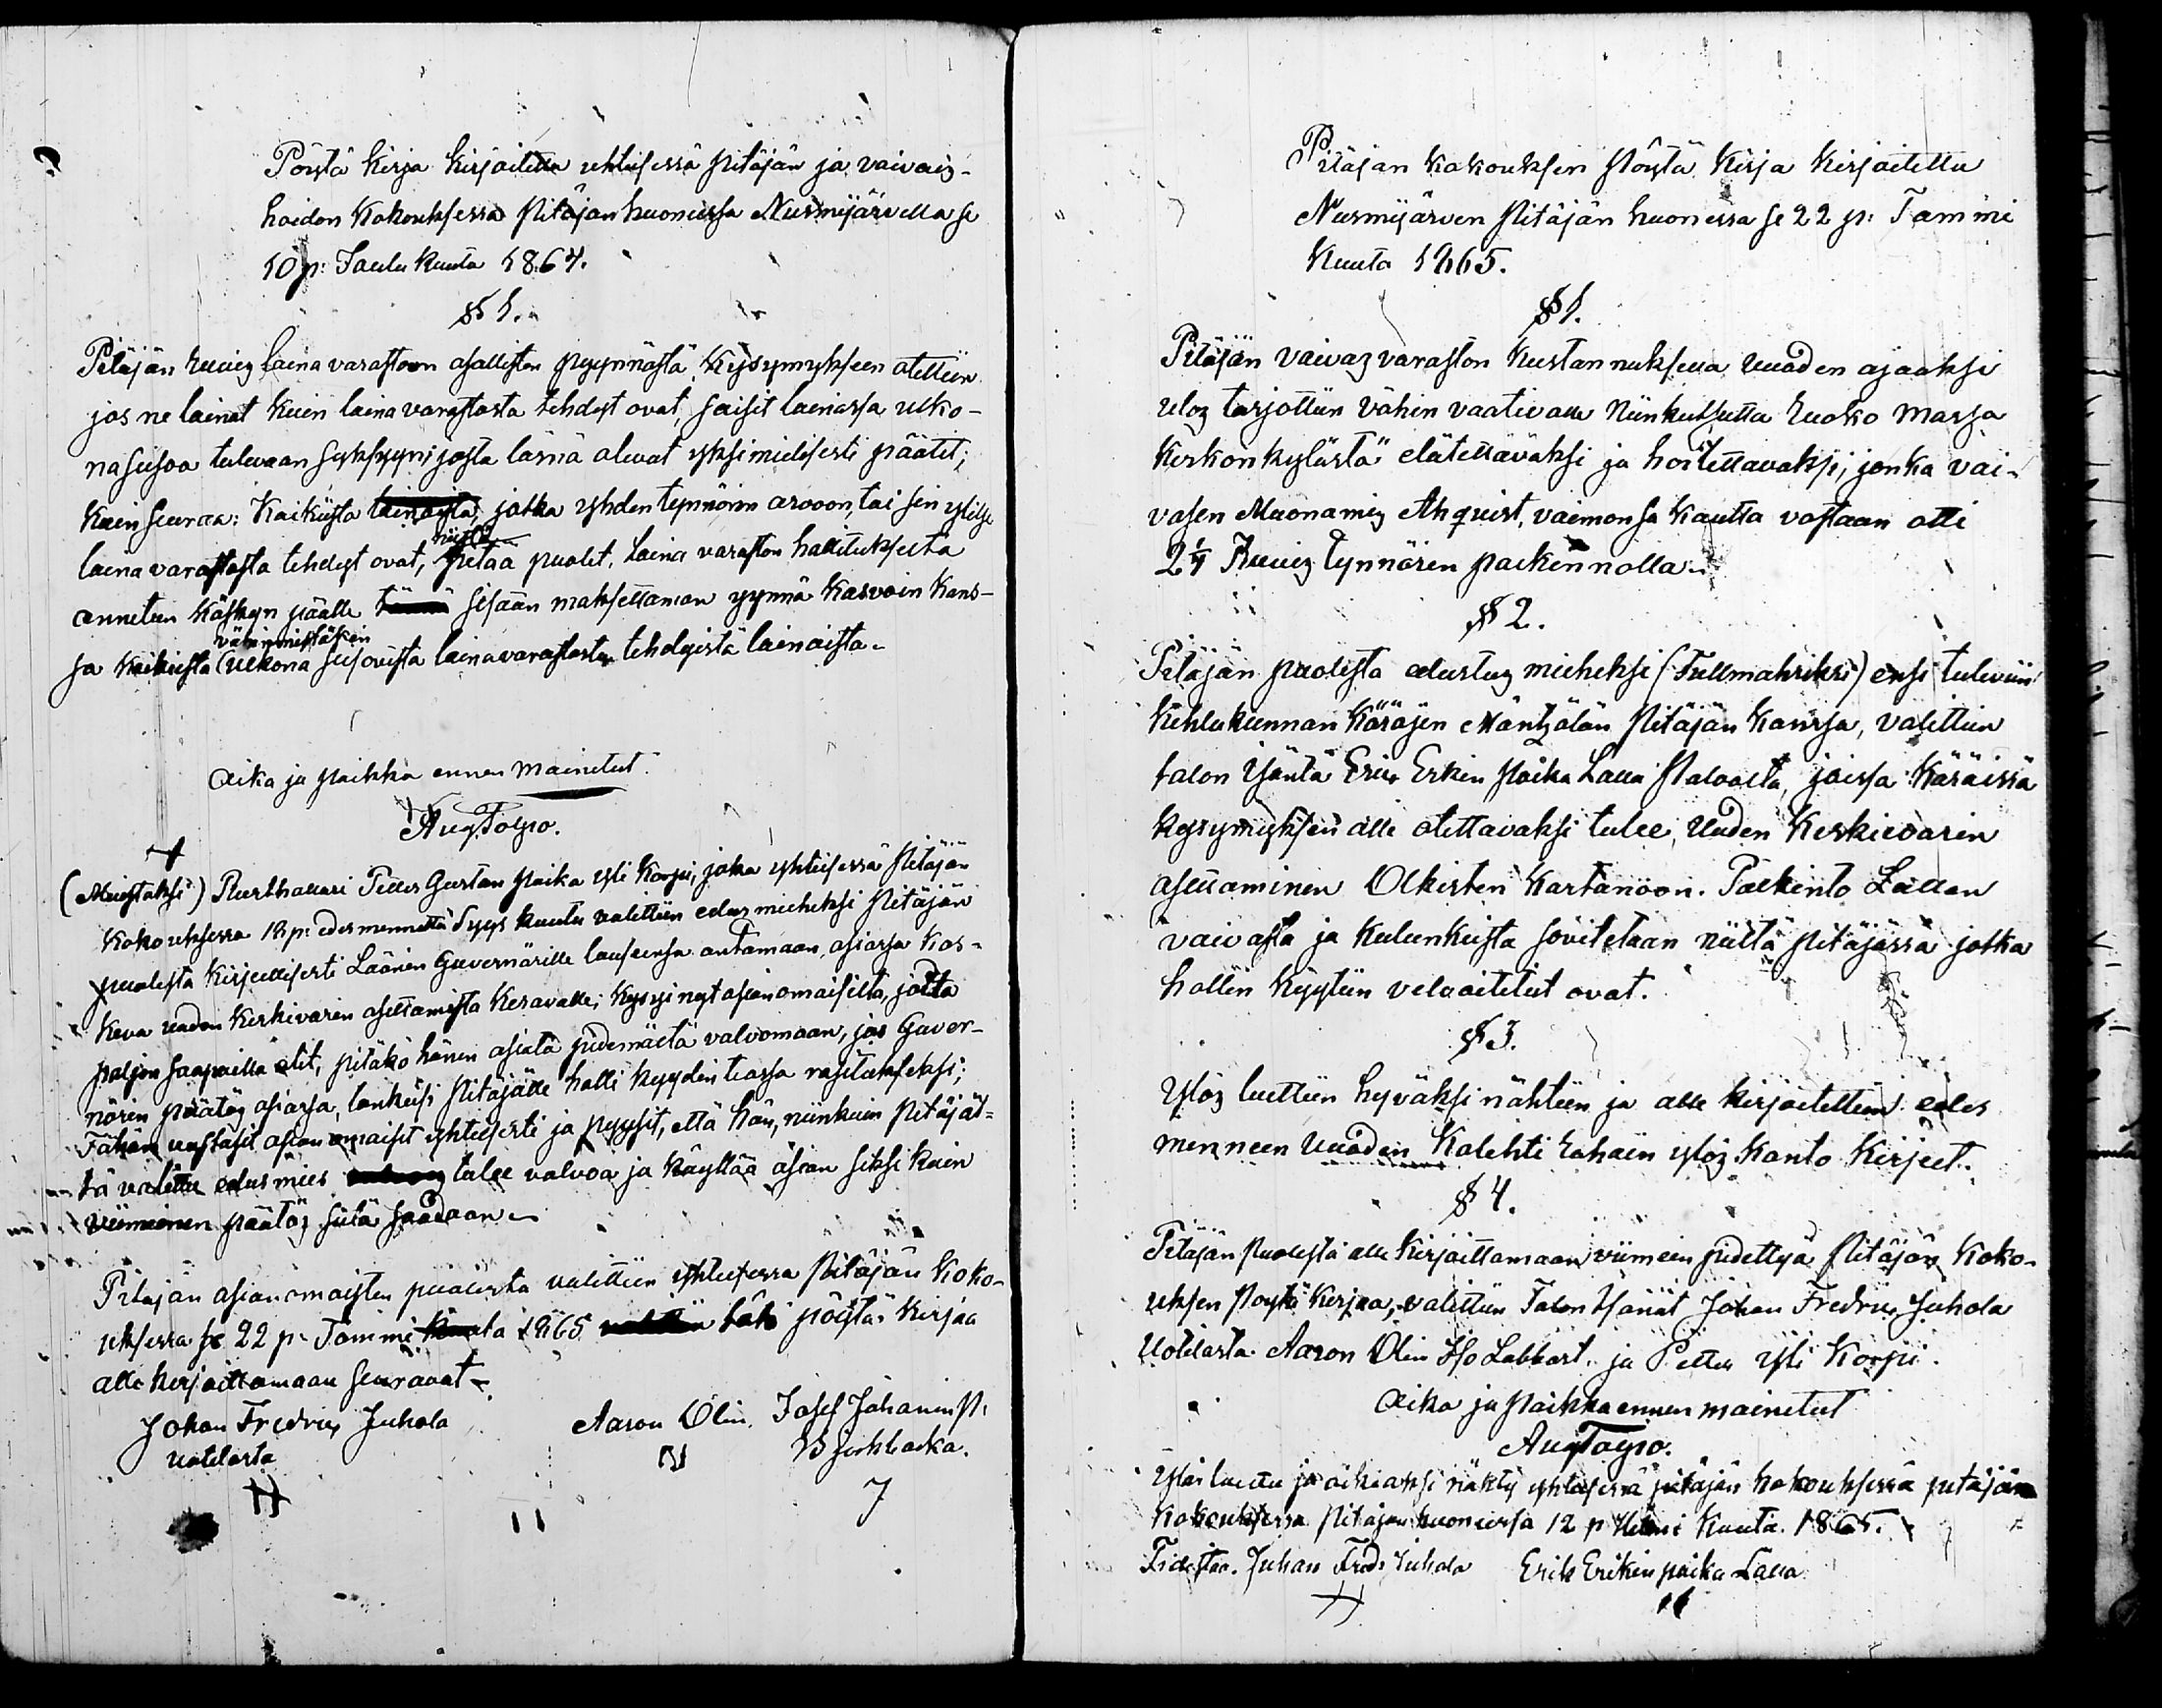 Pöytä Kirja kirjoitettu yhteisessä Pitäjän ja vaivaiz-
hoidon Kokouksessa Pitäjän huoneessa Nurmijärvella se
10 p: Joulu kuuta 1864.
§ 1.
Pitäjän Lainavaraston osallisten pyynnöstä Kysymykseen otettiin
jos ne lainat kuin lainavarastosta tehdyt ovat, saisit lainassa ulko-
na seisoa tulevaan syksyyn; josta läsnä olevat yksimielisesti päätit;
kuin seuraa: Kaikista lainoista, jotka yhden tynnörin arvoon, tai sen ylitze
lainavarastosta tehdyt ovat, niistä pitää puolet, Laina varaston hallitukselta
annetun käskyn päälle sisään maksettaman ynnä Kasvoin Kans-
sa kaikista (vähinnistäkin ulkona seisovista lainavarastosta tehdyistä lainoista.
Aika ja paikka ennen mainitut.
Aug Tolpo.
(Muistoksi) Rusthollari Petter Gustav poika yli Korpi, joka yhteisessä Pitäjän
Kokouksessa 18 p: edesmennettä Syys kuuta valittiin edusmieheksi Pitäjän
puolesta kirjallisesti Läänin Guvernörille lausunsa antamaan, asiassa kos-
keva uuden Kerkivarin asettamista Keravalle; kysyi nyt asianomaisilta, joita
paljon saapuilla olit, pitäkö hänen asiata pidemältä valvomaan, jos Guver-
nörin päätöz asiassa, lankeisi Pitäjälle holli kyydin teossa rasitukseksi;
Tähän vastasit asianomaiset yhteisesti ja pyysit, että hän, niinkuin Pitäjäl-
tä valittu edusmies tulee valvoa ja käyttää asian siksi kuin
viimeinen päätöz siitä saadaan.
Pitäjän asianomaisten puolesta valittiin yhteisessa Pitäjän Koko-
uksessa se 22 p. Tammi kuuta 1865 tätä pöytä Kirjaa
alle kirjoittamaan seuraavat.
Johan Fredric Juhola Aaron Olin. Josef Johanin P.
Uotilasta Bjerkbacka.
Pitäjän kokouksen Pöytä Kirja Kirjoitettu
Nurmijärven Pitäjän huonessa se 22 p: Tammi
Kuuta 1865.
§ 1.
Pitäjän vaivaz varaston Kustannuksella Vuoden ajaaksi
uloz tarjottiin vähin vaativalle Niinkutsuttu huoko Marja
Kirkonkylästä elätettäväksi ja hoitettavaksi; jonka vai-
vasen Muonamiez Ahlqvist, vaimonsa kautta vastaan otti
2 1/4 Ruuiz tynnörin palkinnolla.
§ 2.
Pitäjän puolesta edustuz mieheksi (Fullmahtiksi) ensi tuleviin
Kihlakunnan Käräjen Mäntzälän Pitäjän kanssa, valittiin
talon Isäntä Eric Erkin poika Lalla Palvalta, joissa Käräissä
kysymyksen alle otettavaksi tulee, Uuden Kerkievarin
asettaminen Olkisten Kartanoon. Palkinto Lallan
vaivasta ja kulunkeista sovitetaan niiltä Pitäjässä jotka
hollin kyytiin velvoitetut ovat.
§ 3.
Yloz luettiin hyväksi nähtiin ja alle kirjoitettiin edes
menneen Vuoden Kolehti rahain yloz Kanto Kirjeet.
§ 4.
Pitäjän Puolesta alle Kirjoittamaan viimein pidettyä Pitäjän Koko-
uksen Pöytä Kirjaa, valittiin Talon Isänät Johan Fredric Juhola
Uotilasta Aaron Olin Iso Labbart ja Petter Yli Korpi.
Aika ja Paikka ennen mainitut
Aug Tolpo.
Ylös luettu ja oikiaksi nähty yhteisessä pitäjän kokouksessa pitäjän
kokouksessa Pitäjän huonessa 12 p Helmi Kuuta 1865.
Todistaa. Juhan Fred. Juhola Erik Erikin poika Lalla